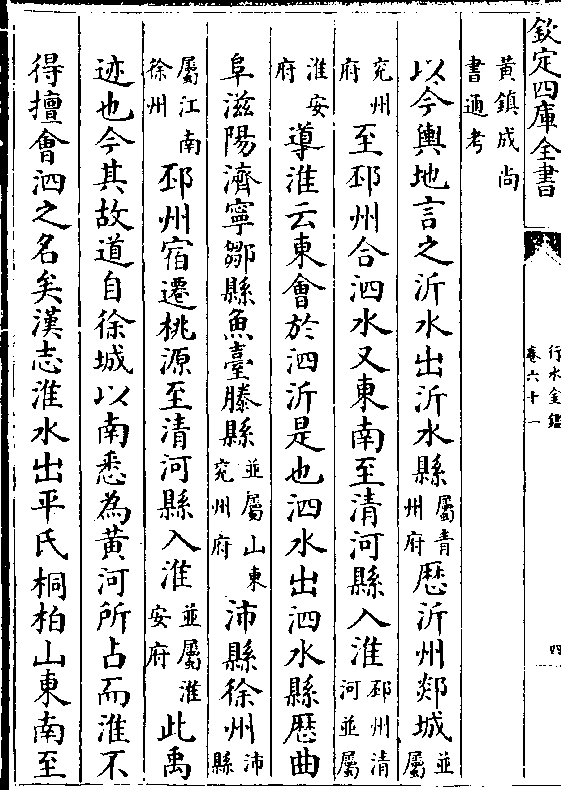 欽定四庫全書
行水金鑑
卷六十一
四
黃鎮成尚
書通考
以今輿地言之沂水出沂水縣屬青州府歴沂州郯城並屬
兖州府至邳州合泗水又東南至清河縣入淮邳州清河並屬
淮安府導淮云東會於泗沂是也泗水出泗水縣歴曲
阜滋陽濟寧鄒縣魚臺滕縣並屬山東兖州府沛縣徐州沛縣
屬江南徐州邳州宿遷桃源至清河縣入淮並屬淮安府此禹
迹也今其故道自徐城以南悉為黃河所占而淮不
得擅會泗之名矣漢志淮水出平氏桐柏山東南至